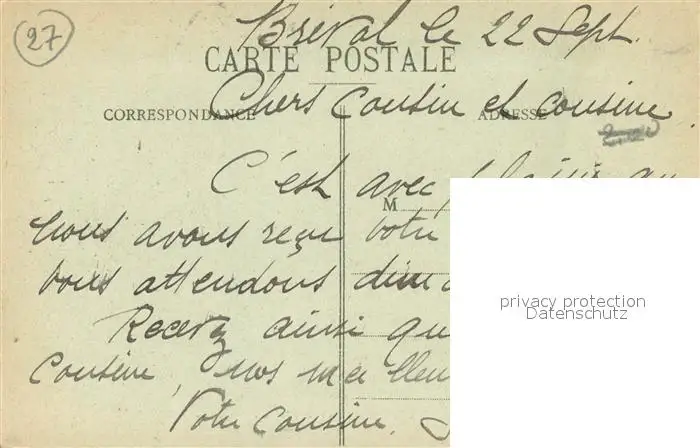 27
Bréval le 22 Sept.
CARTE POSTALE
Chers Cousin et cousine
CORRESPONDANCE
ADRESSE
C'est avec plaisir que
M
nous avons reçu votre
vous attendons dima
privacy protection
Datenschutz
Recevez ainsi que
Cousine, nos meilleu
Votre Cousine.